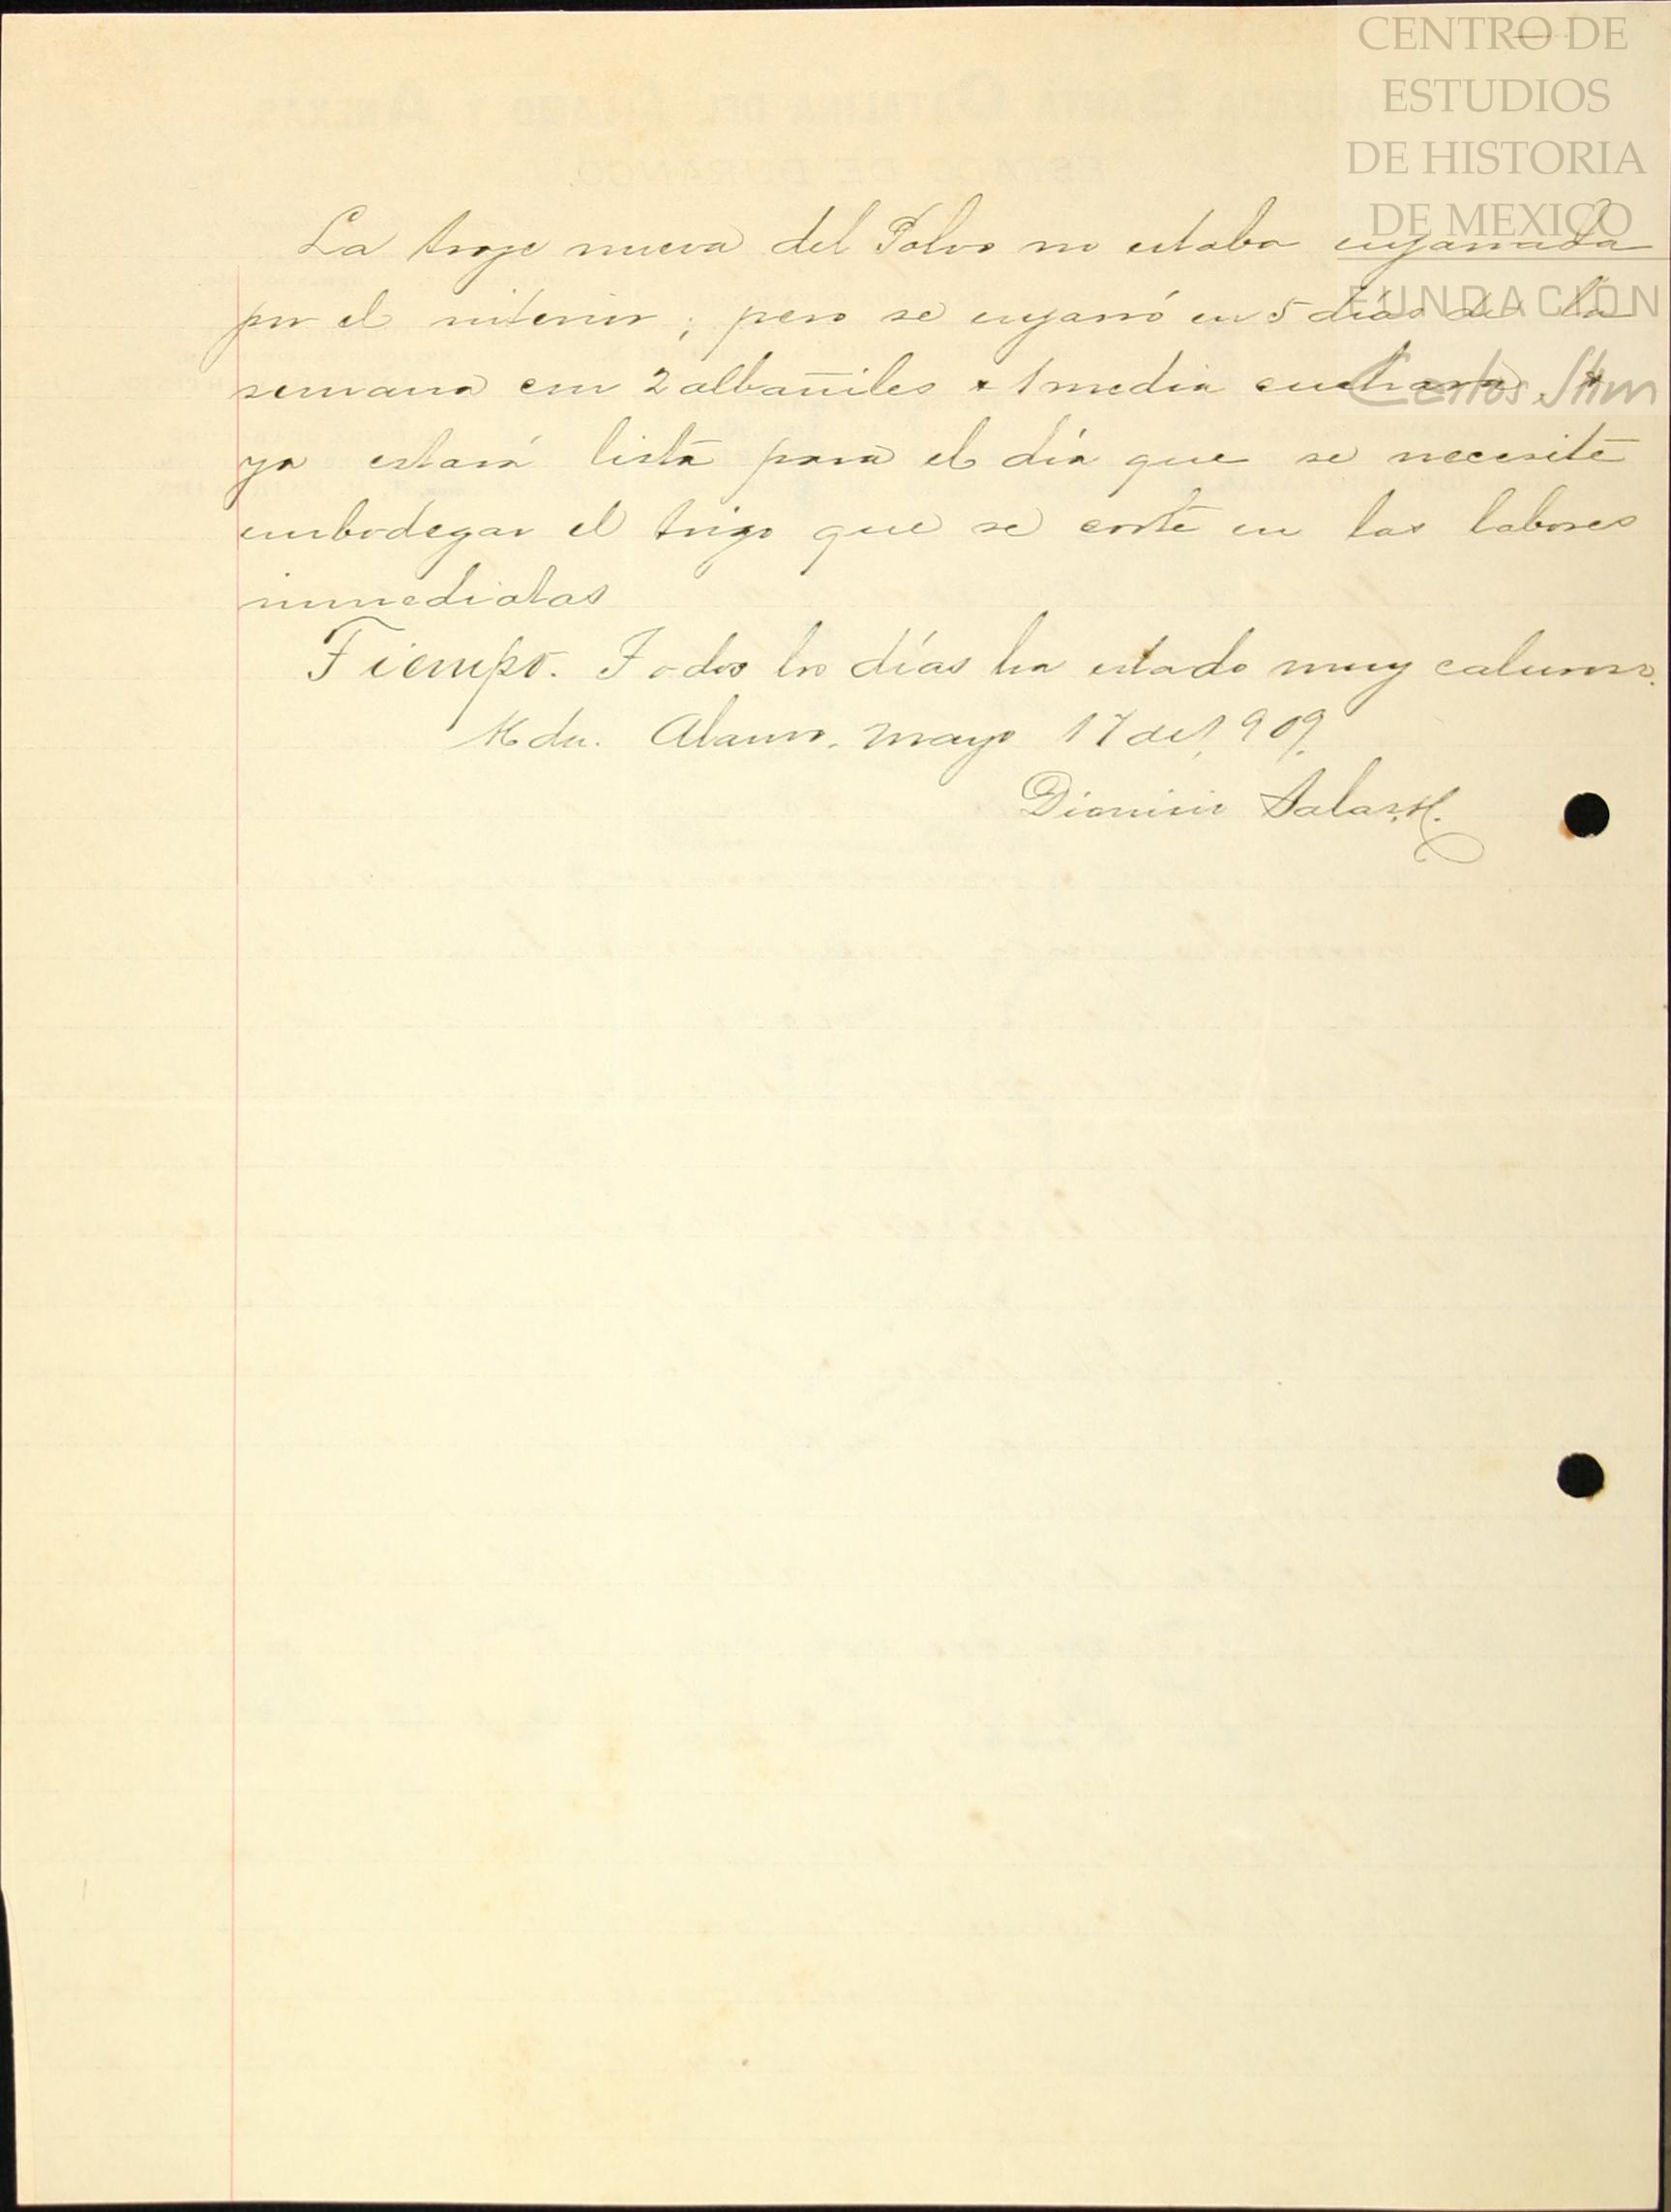 CENTRO DE
ESTUDIOS
DE HISTORIA
DE MEXICO
FUNDACIÓN
Carlos Slim
La troje nueva del Polvo no estaba enjarrada
por el interior; pero se enjarró en 5 días de la
semana con 2 albañiles & 1 media cuchara &
ya estará lista para el día que se necesite
embodegar el trigo que se corte en las labores
inmediatas
Tiempo. Todos los días ha estado muy caluroso.
Hda. Alamo. mayo 17 de 1909.
Dionisio Salas H.